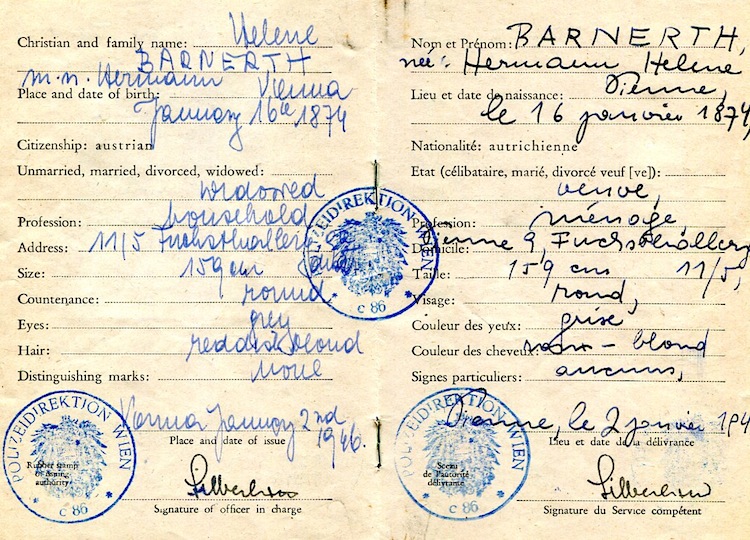 Christian and family name: Helene
BARNERTH
m.n. Hermann
Place and date of birth: Vienna
January 16th 1874
Citizenship: austrian
Unmarried, married, divorced, widowed:
widowed
Profession: household
Address: 11/5
Size: 159 cm
Countenance: round,
Eyes: grey
Hair: reddish blond
Distinguishing marks: None
Vienna January 2nd 1946.
Place and date of issue
POLIZEIDIREKTION WIEN
* c 86 *
Rubber stamp
of issuing
authority
Signature of officer in charge
POLIZEIDIREKTION WIEN
* c 86 *
Nom et Prénom: BARNERTH,
née: Hermann Helene
Lieu et date de naissance: Vienne,
le 16 janvier 1874,
Nationalité: autrichienne
Etat (célibataire, marié, divorcé veuf [ve]):
veuve,
Profession: ménage
Domicile: Vienne 9,
Taille: 159 cm 11/5,
Visage: rond,
Couleur des yeux: grise
Couleur des cheveux: roux - blond
Signes particuliers: aucuns,
Vienne, le 2 janvier 194
Lieu et date de la délivrance
POLIZEIDIREKTION WIEN
* c 86 *
Sceau
de l'autorité
délivrante
Signature du Service compétent